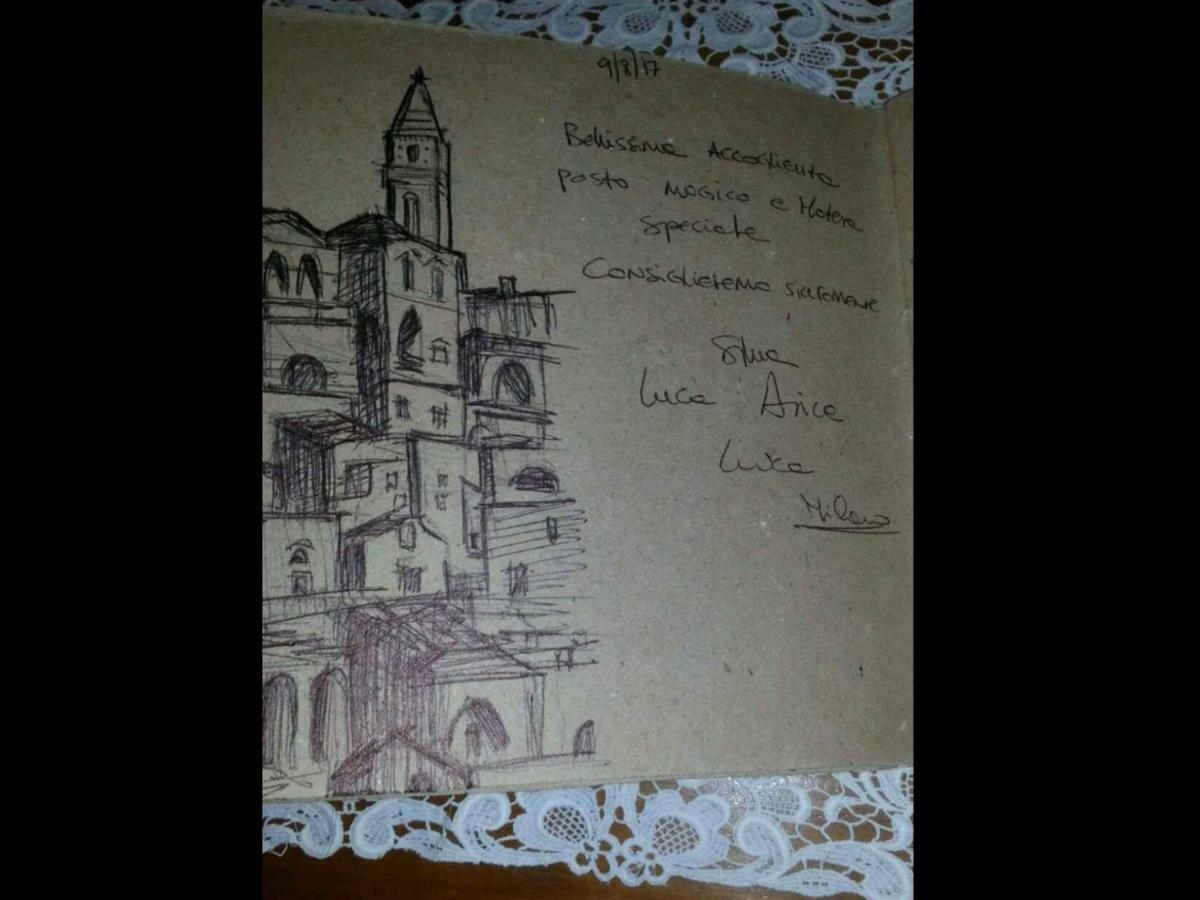 9/8/17
Bellissima Accoglienza
posto magico e Matera
speciale
Consiglieremo sicuramente
Silvia
Luca Anca
Luca
Milano